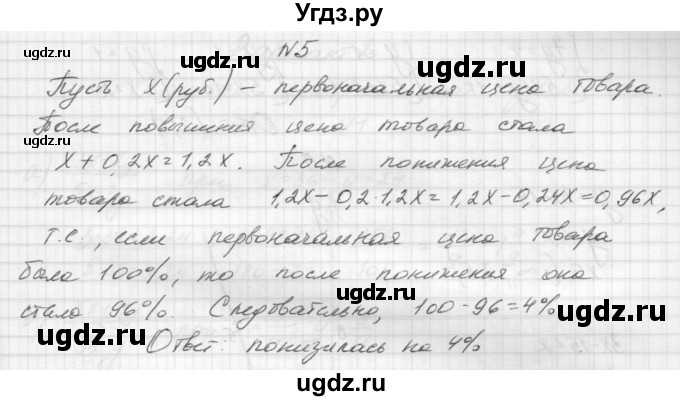 Угдз.ру
N5
Пусть X(руб.) – первоначальная цена товара.
После повышения цена товара стала
X+0,2X=1,2X. После понижения цена
товара стала 1,2X–0,2·1,2X=1,2X–0,24X=0,96X,
т.е., если первоначальная цена товара
была 100%, то после понижения она
стала 96%. Следовательно, 100-96=4%
Ответ: понизилась на 4%
ugdz.ru
ugdz.ru
ugdz.ru
ugdz.ru
ugdz.ru
ugdz.ru
ugdz.ru
ugdz.ru
ugdz.ru
ugdz.ru
ugdz.ru
ugdz.ru